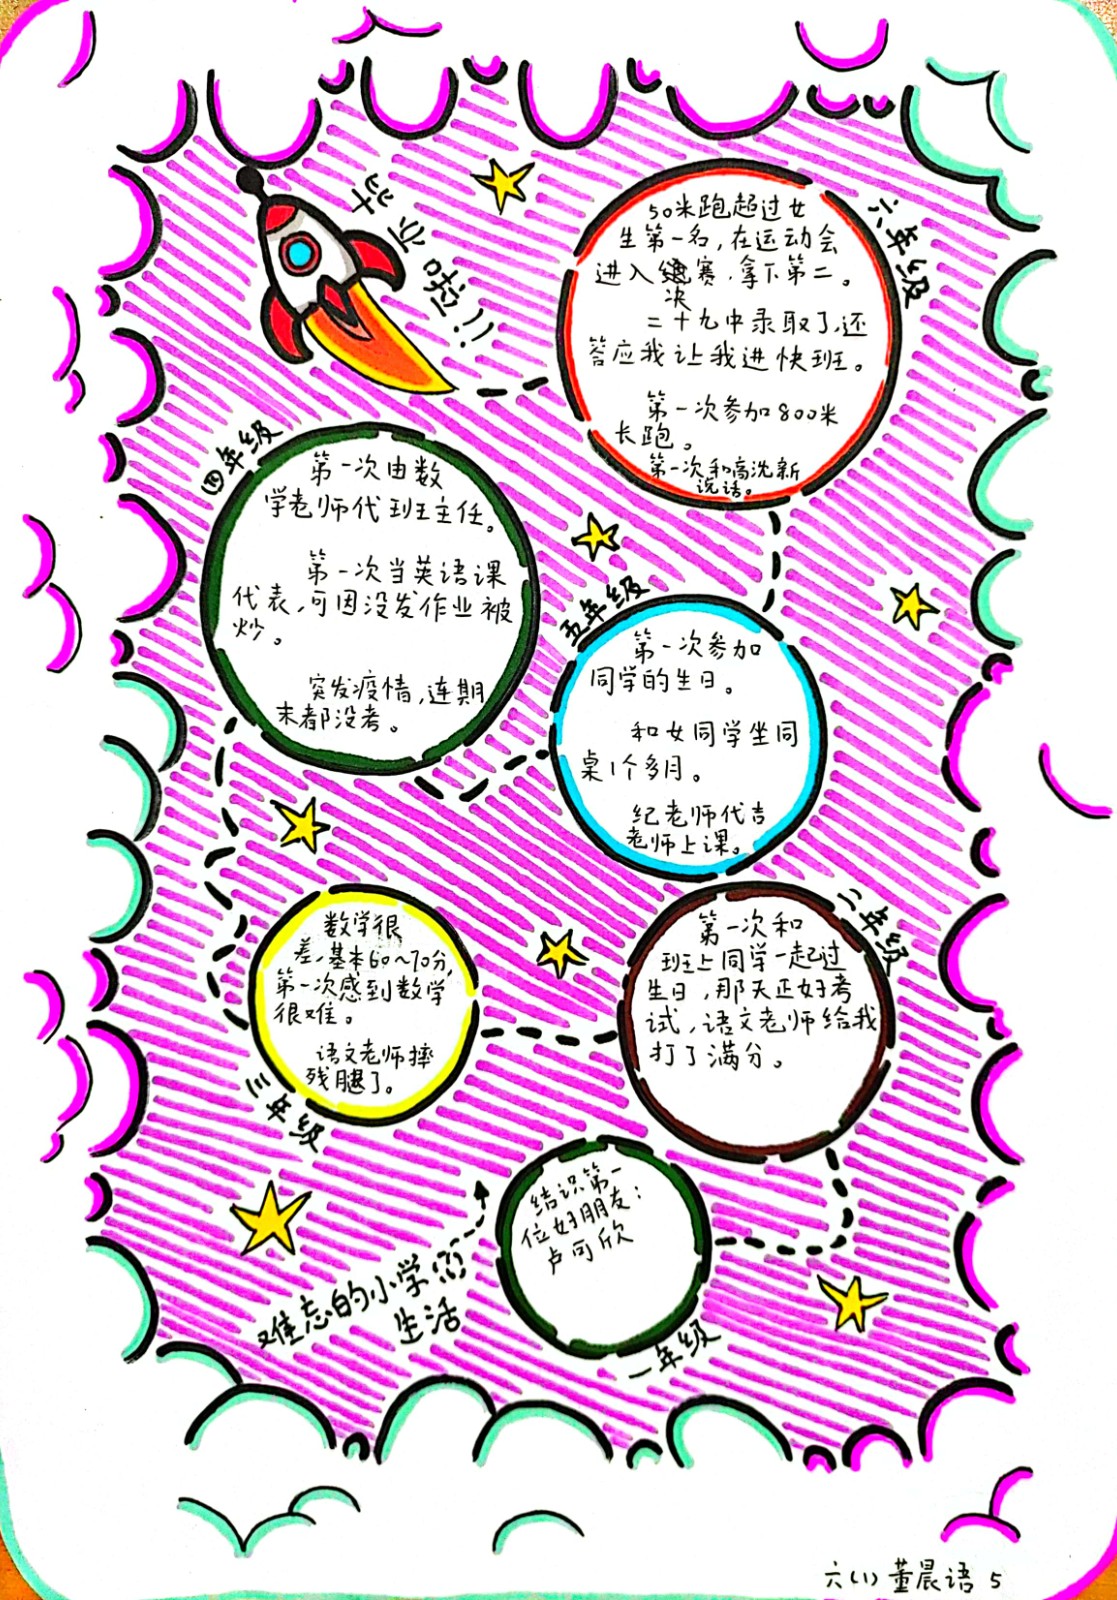 毕业啦!!
六年级
50米跑超过女
生第一名,在运动会
进入决赛,拿下第二。
二十九中录取了,还
答应我让我进快班。
第一次参加800米
长跑。
第一次和高洗新
说话。
四年级
第一次由数
学老师代班主任。
第一次当英语课
代表,可因没发作业被
炒。
突发疫情,连期
末都没考。
五年级
第一次参加
同学的生日。
和女同学坐同
桌1个多月。
纪老师代吉
老师上课。
数学很
差,基本60~70分,
第一次感到数学
很难。
语文老师摔
残腿了。
三年级
二年级
第一次和
班上同学一起过
生日,那天正好考
试,语文老师给我
打了满分。
结识第一
位好朋友:
卢可欣
一年级
难忘的小学
生活
六(1)董晨语 5